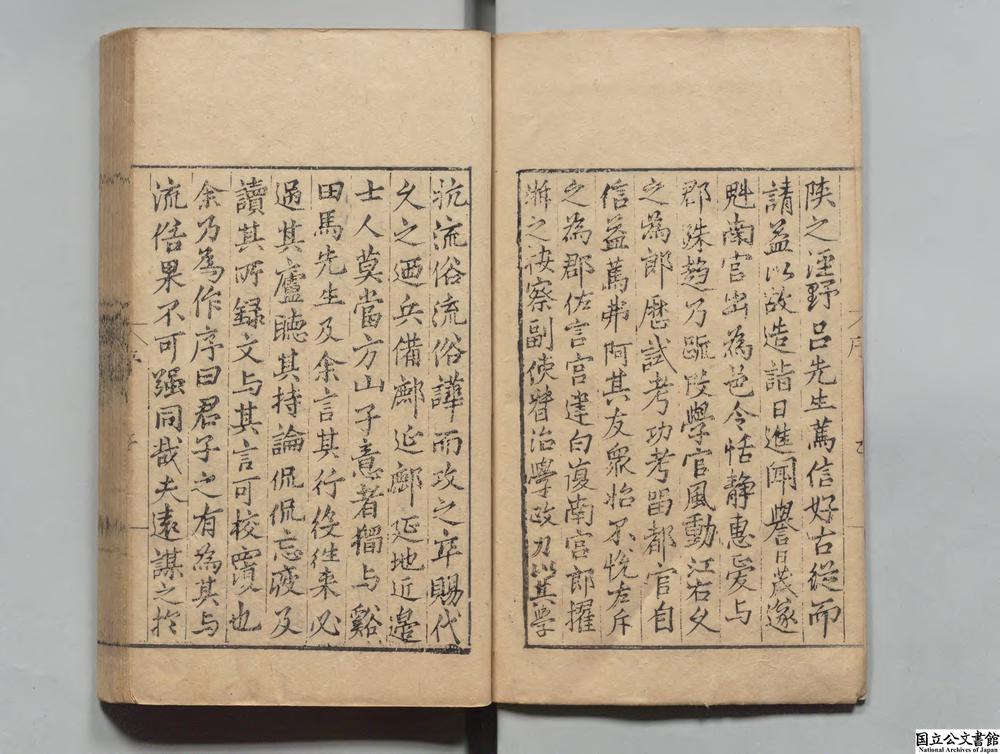 陝之涇野吕先生篤信好古從而
請益以故造詣日進聞譽日茂遂
魁南宫出為邑令恬静惠愛与
郡殊趋乃改學官風動江右夂
之為郎歴試考功考留都官自
信益篤弗阿其友衆怡不悅左斥
之為郡佐言官達白復南宫郎擢
浙之按察副使督治學政乃以其學
抗流俗流俗譁而攻之卒賜代
夂之廼兵備鄜延鄜延地近邉
士人莫當方山子意者獨与谿
田馬先生及余言其行役徃来必
過其廬聴其持論侃侃忘疲及
讀其所録文与其言可校實也
余乃為作序曰君子之有為其与
流俗果不可强同哉夫遠謀之扵
序
国立公文書館
National Archives of Japan